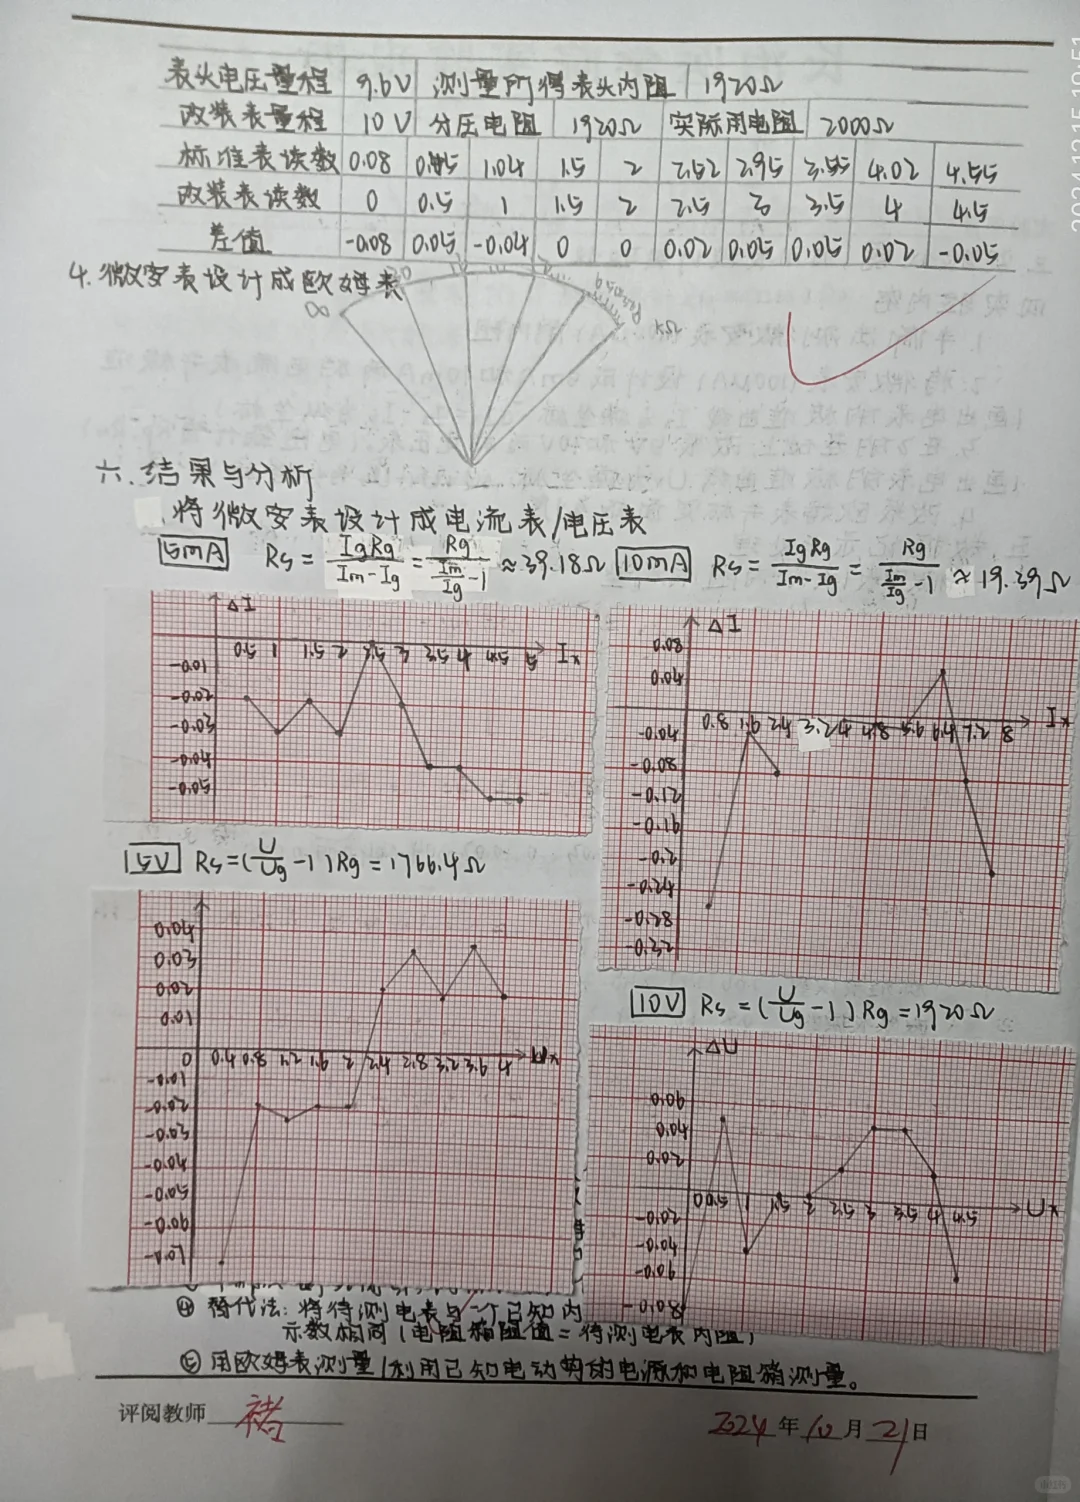 表头电压量程 9.6V 测量所得表头内阻 1920Ω
改装表量程 10V 分压电阻 1920Ω 实际用电阻 2000Ω
标准表读数 0.08 0.45 1.04 1.5 2 2.52 2.95 3.55 4.02 4.55
改装表读数 0 0.5 1 1.5 2 2.5 3 3.5 4 4.5
差值 -0.08 0.05 -0.04 0 0 0.02 0.05 0.05 0.02 -0.05
4.微安表设计成欧姆表
∞
六.结果与分析
将微安表设计成电流表/电压表
5mA Rs=IgRg/Im-Ig=Rg/Im/Ig-1≈39.18Ω 10mA Rs=IgRg/Im-Ig=Rg/Im/Ig-1≈19.39Ω
ΔI
0.5 1 1.5 2 2.5 3 3.5 4 4.5 5 Ix
-0.01
-0.02
-0.03
-0.04
-0.05
ΔI
0.08
0.04
0.8 1.6 2.4 3.2 4 4.8 5.6 6.4 7.2 8 Ix
-0.04
-0.08
-0.12
-0.16
-0.2
-0.24
-0.28
-0.32
5V Rs=(U/Ug-1)Rg=1766.4Ω
0.04
0.03
0.02
0.01
0 0.4 0.8 1.2 1.6 2 2.4 2.8 3.2 3.6 4
-0.01
-0.02
-0.03
-0.04
-0.05
-0.06
10V Rs=(U/Ug-1)Rg=1920Ω
ΔU
0.06
0.04
0.02
0 0.5 1 1.5 2 2.5 3 3.5 4 4.5 Ux
-0.02
-0.04
-0.06
-0.08
④ 替代法:将待测电表与一个已知内
示数相同(电阻箱阻值=待测电表内阻)
⑤ 用欧姆表测量/利用已知电动势的电源和电阻箱测量。
评阅教师 褚
2024年10月21日
2024.12.15 10:51